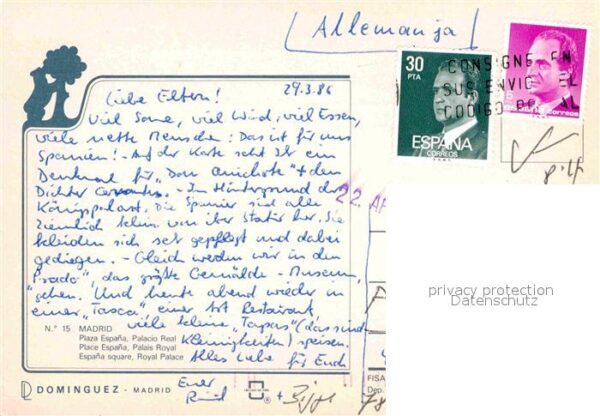 [Allemanja]
29.3.86
Liebe Eltern!
Viel Sonne, viel Wind, viel Essen,
viele nette Menschen: Das ist für uns
Spanien! - Auf der Karte seht Ihr ein
Denkmal für "Don Quichote" + den
Dichter Cervantes. - Im Hintergrund der
Königspalast. Die Spanier sind alle
ziemlich klein von ihrer Statur her. Sie
kleiden sich sehr gepflegt und dabei
gediegen. - Gleich werden wir in den
"Prado", das größte Gemälde-Museum,
gehen. Und heute abend wieder in
einer "Tasca", einer Art Restaurant,
viele kleine "Tapas" (das sind
Kleinigkeiten) speisen.
Alles Liebe für Euch
Euer
N.º 15 MADRID
Plaza España, Palacio Real
Place España, Palais Royal
España square, Royal Palace
DOMINGUEZ - MADRID
30
PTA
ESPAÑA
CORREOS
ESPAÑA correos
CONSIGNE EN
SUS ENVIOS EL
CODIGO POSTAL
22. AP
FISA
Dep.
privacy protection
Datenschutz